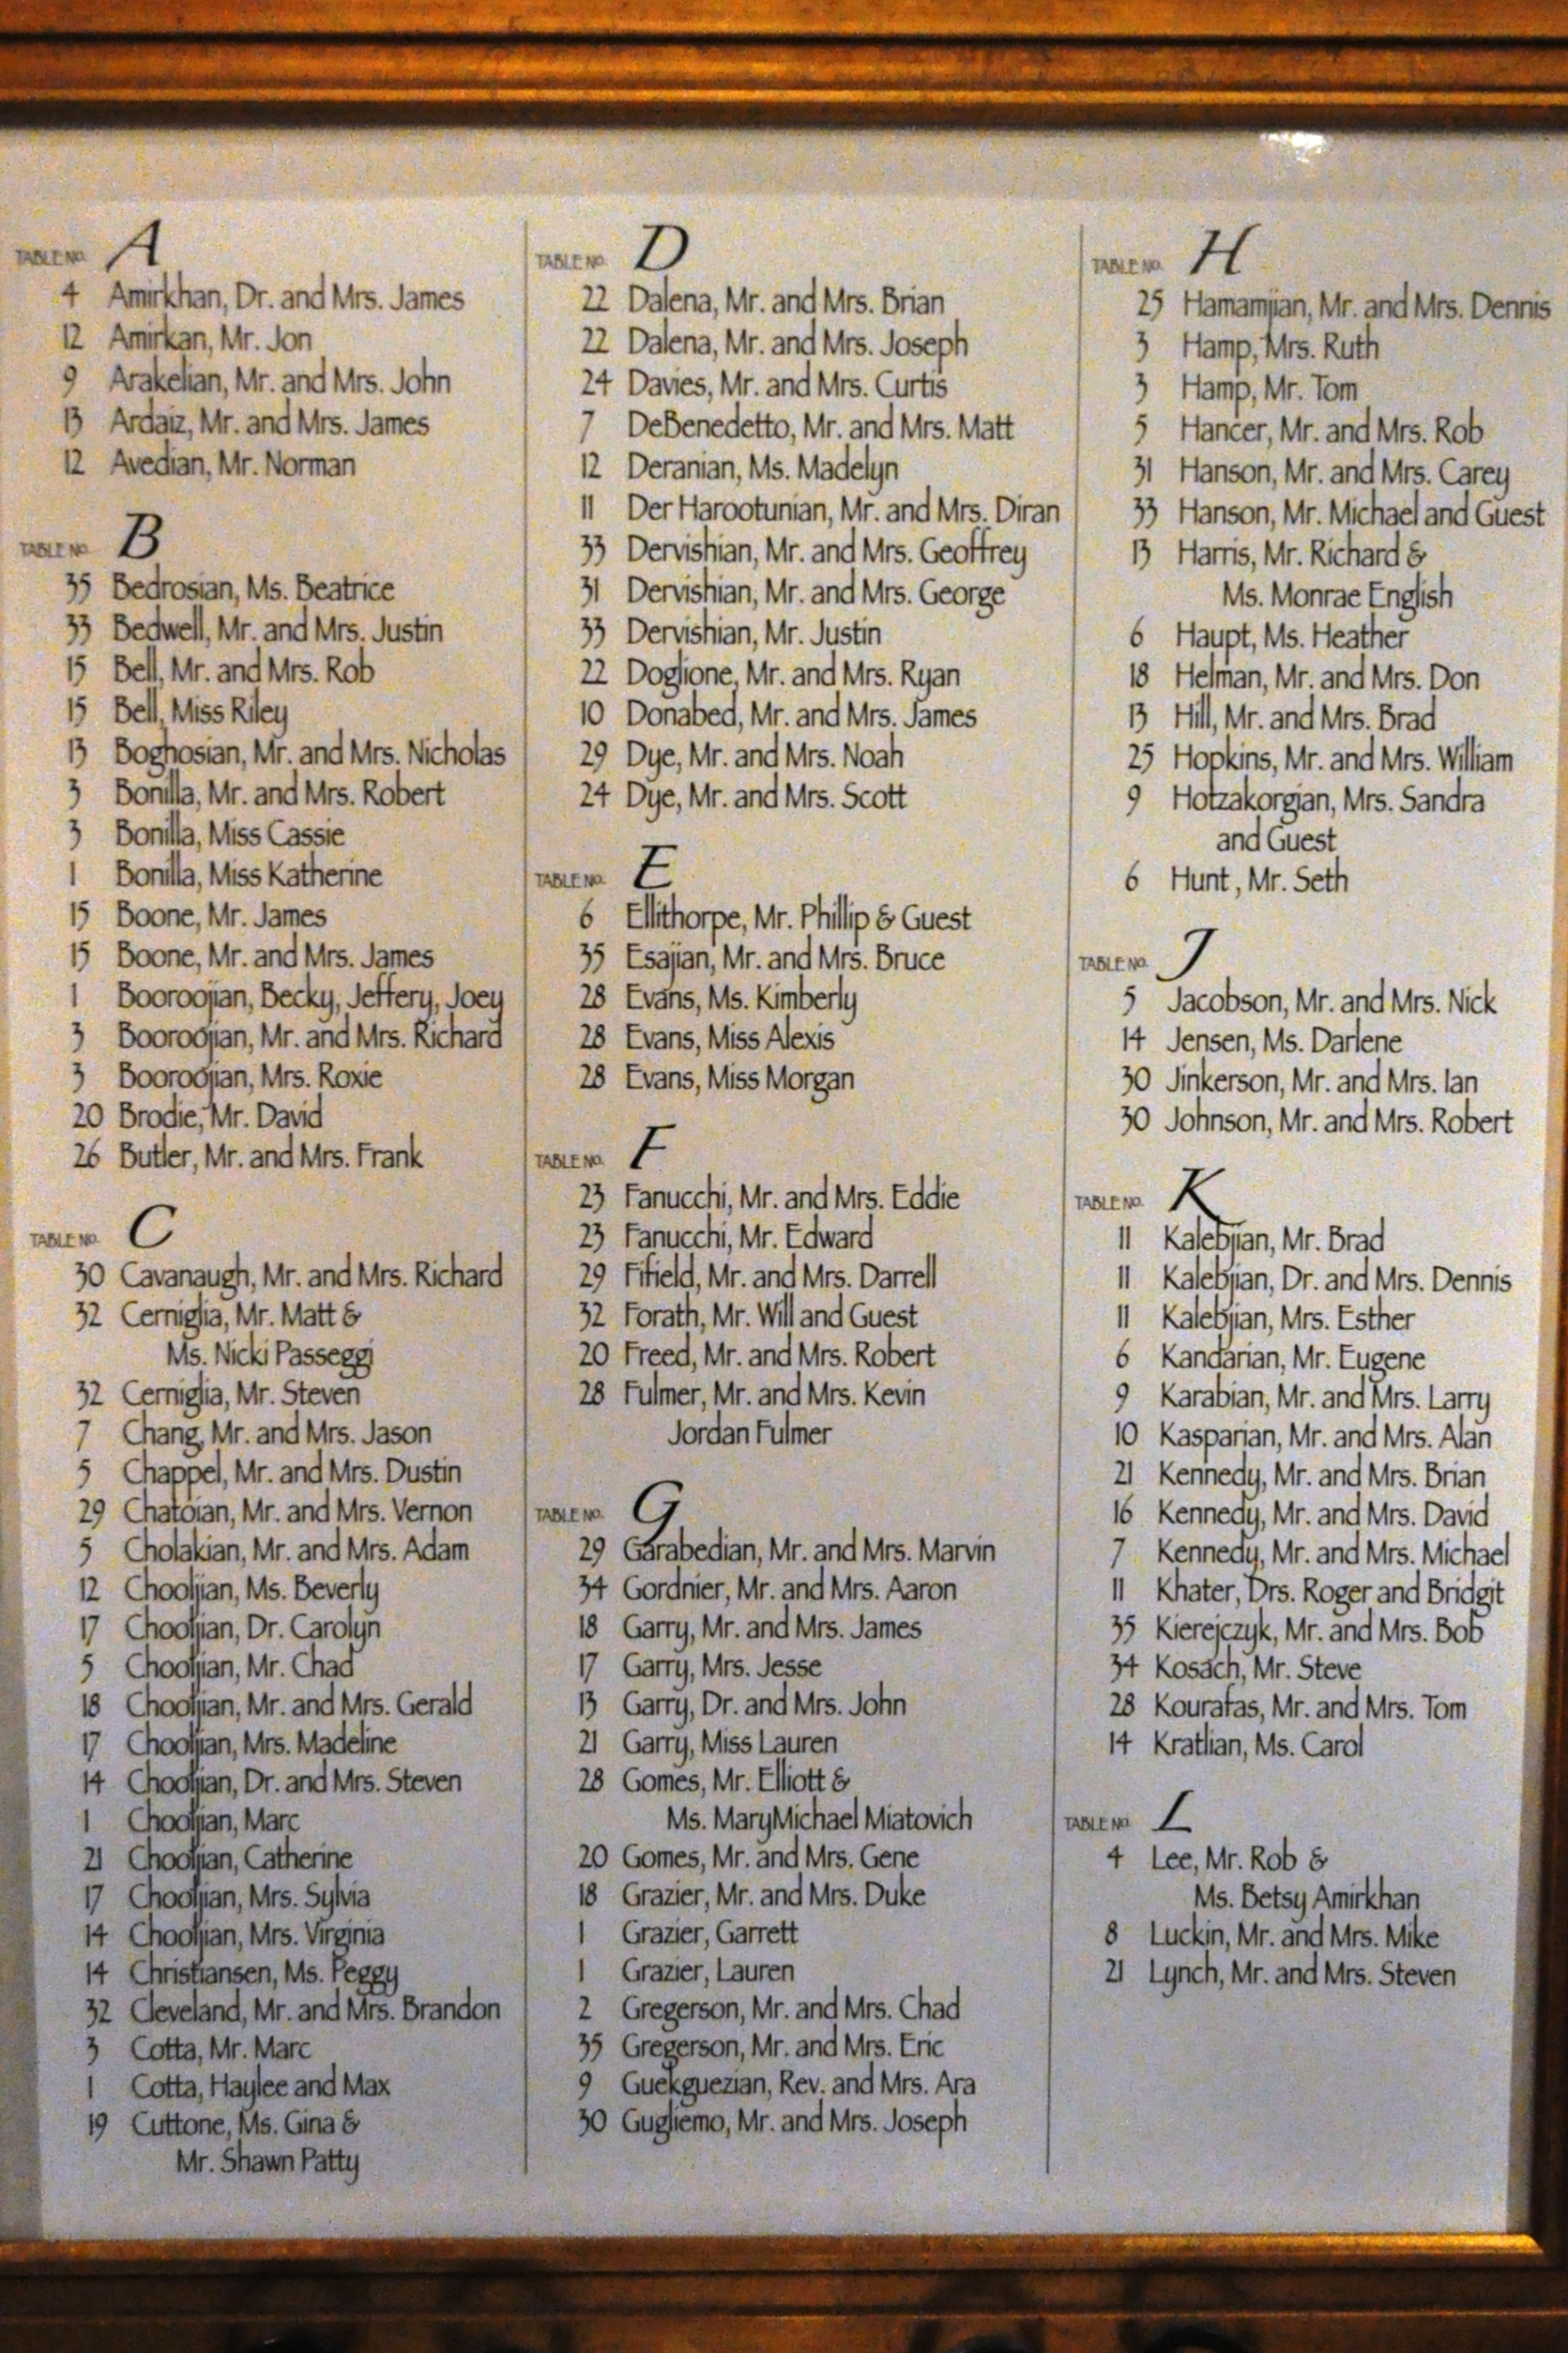 TABLE NO. A
4 Amirkhan, Dr. and Mrs. James
12 Amirkan, Mr. Jon
9 Arakelian, Mr. and Mrs. John
13 Ardaiz, Mr. and Mrs. James
12 Avedian, Mr. Norman
TABLE NO. B
35 Bedrosian, Ms. Beatrice
33 Bedwell, Mr. and Mrs. Justin
15 Bell, Mr. and Mrs. Rob
15 Bell, Miss Riley
13 Boghosian, Mr. and Mrs. Nicholas
3 Bonilla, Mr. and Mrs. Robert
3 Bonilla, Miss Cassie
1 Bonilla, Miss Katherine
15 Boone, Mr. James
15 Boone, Mr. and Mrs. James
1 Booroojian, Becky, Jeffery, Joey
3 Booroojian, Mr. and Mrs. Richard
3 Booroojian, Mrs. Roxie
20 Brodie, Mr. David
26 Butler, Mr. and Mrs. Frank
TABLE NO. C
30 Cavanaugh, Mr. and Mrs. Richard
32 Cerniglia, Mr. Matt &
Ms. Nicki Passeggi
32 Cerniglia, Mr. Steven
7 Chang, Mr. and Mrs. Jason
5 Chappel, Mr. and Mrs. Dustin
29 Chatoian, Mr. and Mrs. Vernon
5 Cholakian, Mr. and Mrs. Adam
12 Chooljian, Ms. Beverly
17 Chooljian, Dr. Carolyn
5 Chooljian, Mr. Chad
18 Chooljian, Mr. and Mrs. Gerald
17 Chooljian, Mrs. Madeline
14 Chooljian, Dr. and Mrs. Steven
1 Chooljian, Marc
21 Chooljian, Catherine
17 Chooljian, Mrs. Sylvia
14 Chooljian, Mrs. Virginia
14 Christiansen, Ms. Peggy
32 Cleveland, Mr. and Mrs. Brandon
3 Cotta, Mr. Marc
1 Cotta, Haylee and Max
19 Cuttone, Ms. Gina &
Mr. Shawn Patty
TABLE NO. D
22 Dalena, Mr. and Mrs. Brian
22 Dalena, Mr. and Mrs. Joseph
24 Davies, Mr. and Mrs. Curtis
7 DeBenedetto, Mr. and Mrs. Matt
12 Deranian, Ms. Madelyn
11 Der Harootunian, Mr. and Mrs. Diran
33 Dervishian, Mr. and Mrs. Geoffrey
31 Dervishian, Mr. and Mrs. George
33 Dervishian, Mr. Justin
22 Doglione, Mr. and Mrs. Ryan
10 Donabed, Mr. and Mrs. James
29 Dye, Mr. and Mrs. Noah
24 Dye, Mr. and Mrs. Scott
TABLE NO. E
6 Ellithorpe, Mr. Phillip & Guest
35 Esajian, Mr. and Mrs. Bruce
28 Evans, Ms. Kimberly
28 Evans, Miss Alexis
28 Evans, Miss Morgan
TABLE NO. F
23 Fanucchi, Mr. and Mrs. Eddie
23 Fanucchi, Mr. Edward
29 Fifield, Mr. and Mrs. Darrell
32 Forath, Mr. Will and Guest
20 Freed, Mr. and Mrs. Robert
28 Fulmer, Mr. and Mrs. Kevin
Jordan Fulmer
TABLE NO. G
29 Garabedian, Mr. and Mrs. Marvin
34 Gordnier, Mr. and Mrs. Aaron
18 Garry, Mr. and Mrs. James
17 Garry, Mrs. Jesse
13 Garry, Dr. and Mrs. John
21 Garry, Miss Lauren
28 Gomes, Mr. Elliott &
Ms. MaryMichael Miatovich
20 Gomes, Mr. and Mrs. Gene
18 Grazier, Mr. and Mrs. Duke
1 Grazier, Garrett
1 Grazier, Lauren
2 Gregerson, Mr. and Mrs. Chad
35 Gregerson, Mr. and Mrs. Eric
9 Guekguezian, Rev. and Mrs. Ara
30 Gugliemo, Mr. and Mrs. Joseph
TABLE NO. H
25 Hamamjian, Mr. and Mrs. Dennis
3 Hamp, Mrs. Ruth
3 Hamp, Mr. Tom
5 Hancer, Mr. and Mrs. Rob
31 Hanson, Mr. and Mrs. Carey
33 Hanson, Mr. Michael and Guest
13 Harris, Mr. Richard &
Ms. Monrae English
6 Haupt, Ms. Heather
18 Helman, Mr. and Mrs. Don
13 Hill, Mr. and Mrs. Brad
25 Hopkins, Mr. and Mrs. William
9 Hotzakorgian, Mrs. Sandra
and Guest
6 Hunt, Mr. Seth
TABLE NO. J
5 Jacobson, Mr. and Mrs. Nick
14 Jensen, Ms. Darlene
30 Jinkerson, Mr. and Mrs. Ian
30 Johnson, Mr. and Mrs. Robert
TABLE NO. K
11 Kalebjian, Mr. Brad
11 Kalebjian, Dr. and Mrs. Dennis
11 Kalebjian, Mrs. Esther
6 Kandarian, Mr. Eugene
9 Karabian, Mr. and Mrs. Larry
10 Kasparian, Mr. and Mrs. Alan
21 Kennedy, Mr. and Mrs. Brian
16 Kennedy, Mr. and Mrs. David
7 Kennedy, Mr. and Mrs. Michael
11 Khater, Drs. Roger and Bridgit
35 Kierejczyk, Mr. and Mrs. Bob
34 Kosach, Mr. Steve
28 Kourafas, Mr. and Mrs. Tom
14 Kratlian, Ms. Carol
TABLE NO. L
4 Lee, Mr. Rob &
Ms. Betsy Amirkhan
8 Luckin, Mr. and Mrs. Mike
21 Lynch, Mr. and Mrs. Steven